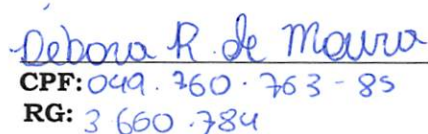 Debora R. de Moura
CPF: 049.760.763-85
RG: 3 660.784